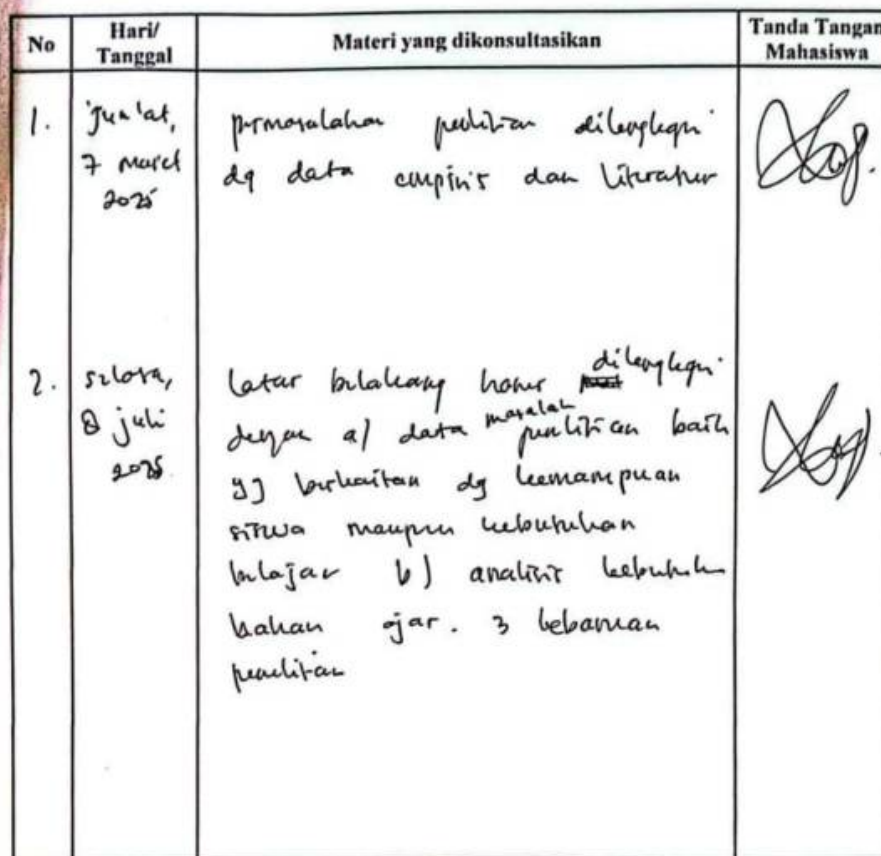 No
Hari/
Tanggal
Materi yang dikonsultasikan
Tanda Tangan
Mahasiswa
1.
Jum'at,
7 maret
2025
permasalahan penelitian dilengkapi
dg data empiris dan literatur
2.
selasa,
8 juli
2025.
latar belakang harus dilengkapi
dengan a) data masalah penelitian baik
yg berkaitan dg kemampuan
siswa maupun kebutuhan
belajar b) analisis kebutuhan
bahan ajar. 3 kebaruan
penelitian